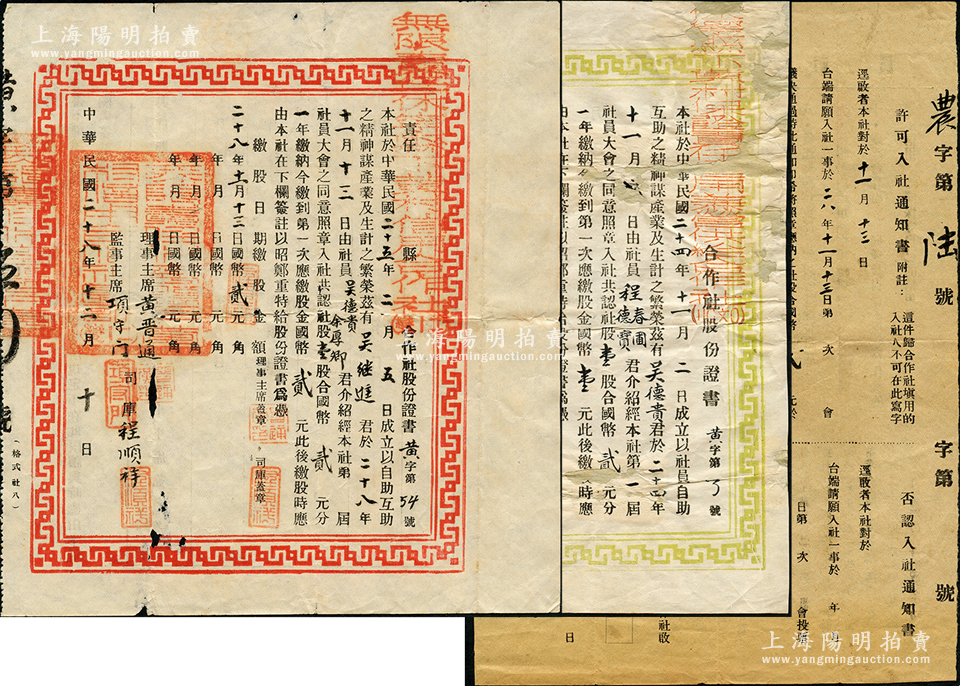 上海陽明拍賣
www.yangmingauction.com
責任
縣
合作社股份證書
黃字第54號
本社於中華民國二十五年二月五日成立以自助互助
之精神謀產業及生計之繁榮茲有吳繼進君於二十八年
十一月十三日由社員吳德貴
余厚卿
君介紹經本社第
屆
社員大會之同意照章入社共認社股壹股合國幣貳元分
一年繳納今繳到第一次應繳股金國幣貳元此後繳股時應
由本社在下欄簽註以昭鄭重特給股份證書爲憑
繳股日期繳股金額理事主席蓋章,司庫蓋章
二十八年十一月十三日國幣貳元角
年月日國幣元角
年月日國幣元角
年月日國幣元角
理事主席黃晋通
司庫程順祥
監事主席項守門
中華民國二十八年十二月十日
(格式社八)
合作社股份證書
黃字第號
本社於中華民國二十四年十一月二日成立以社員自助
互助之精神謀產業及生計之繁榮茲有吳德貴君於二十四年
十一月六日由社員程春圃
君介紹經本社第一屆
社員大會之同意照章入社共認社股壹股合國幣貳元分
一年繳納今繳到第一次應繳股金國幣壹元此後繳股時應
農字第陸號
許可入社通知書
附註:
這件歸合作社塡用的
入社人不可在此寫字
逕啟者本社對於
十一月十三日
台端請願入社一事於二八年十一月十三日第次會
字第號
否認入社通知書
逕啟者本社對於
台端請願入社一事於年月
日第次會投票
社啟
日
上海陽明拍賣
www.yangmingauction.com